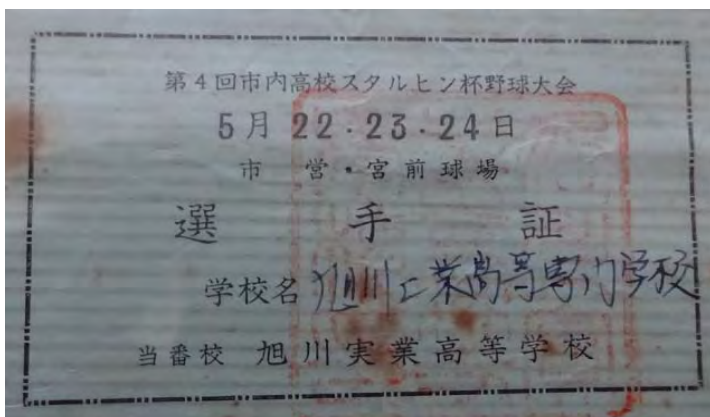 第4回市内高校スタルヒン杯野球大会
5月22・23・24日
市営・宮前球場
選手証
学校名 旭川工業高等専門学校
当番校 旭川実業高等学校